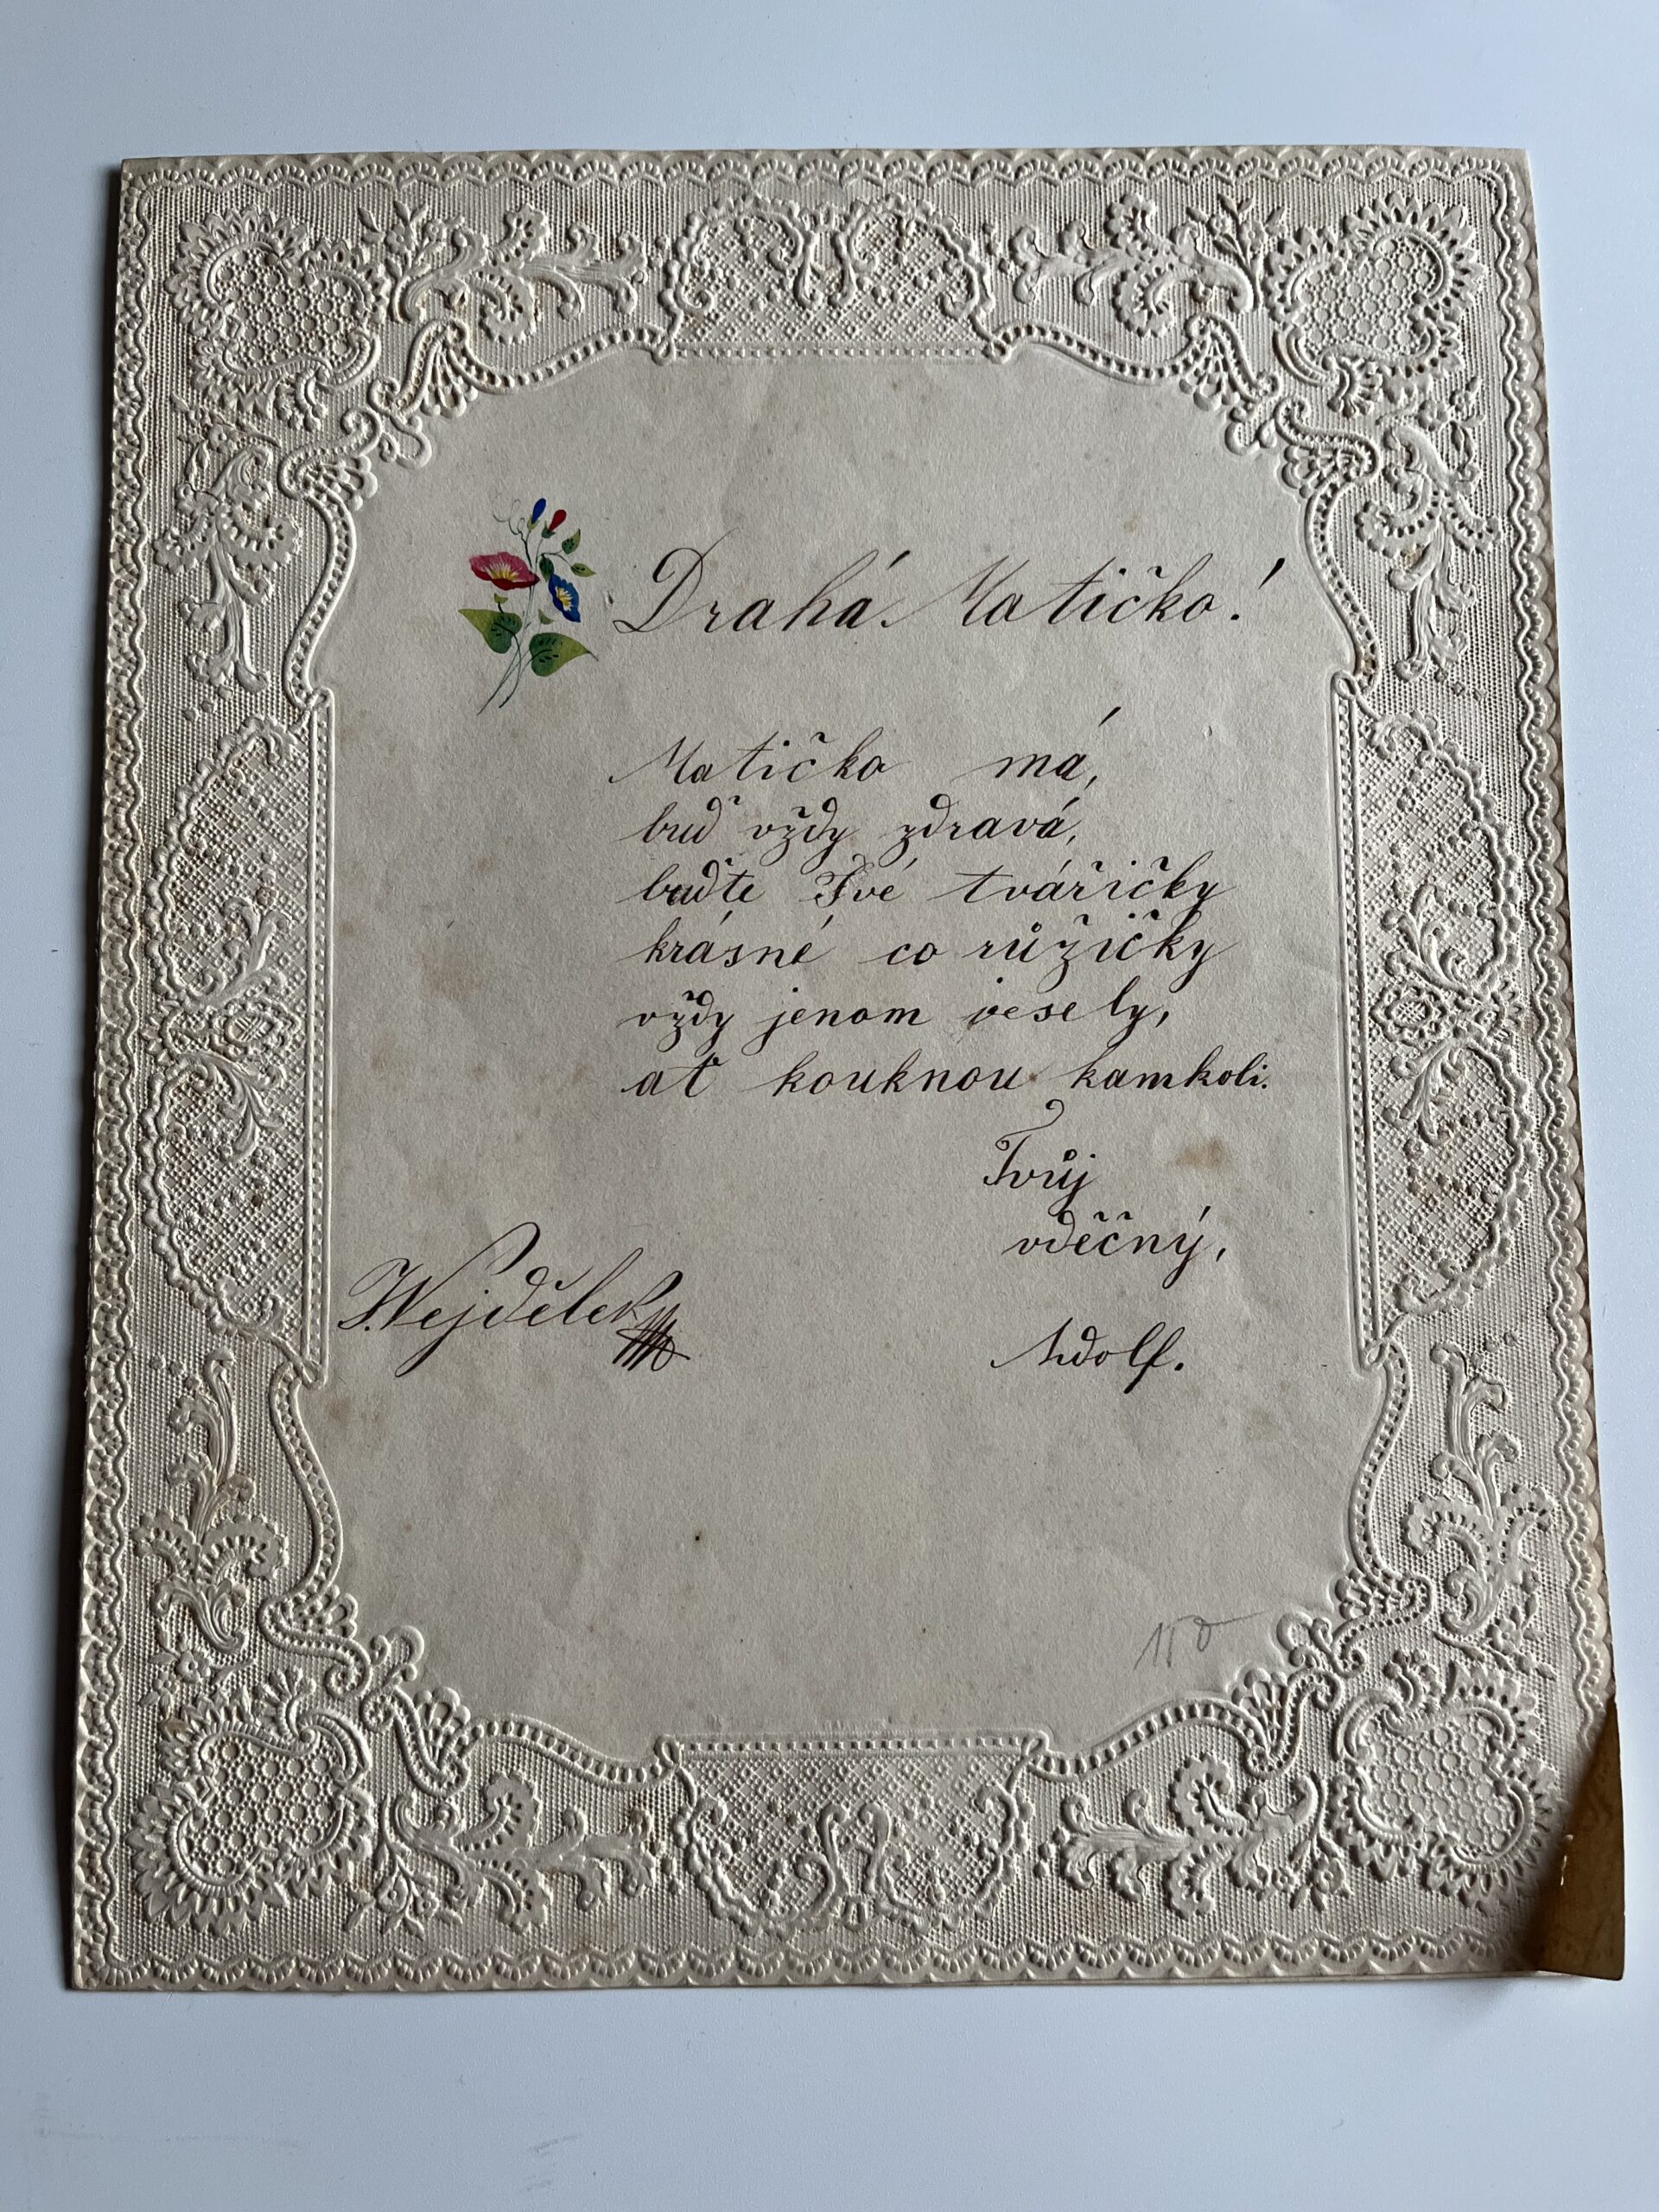 Drahá Matičko!
Matičko má,
buď vždy zdravá,
buďte Tvé tvářičky
krásné co růžičky
vždy jenom vesely,
ať kouknou kamkoli.
Tvůj
vděčný,
Wejdělek
Adolf.